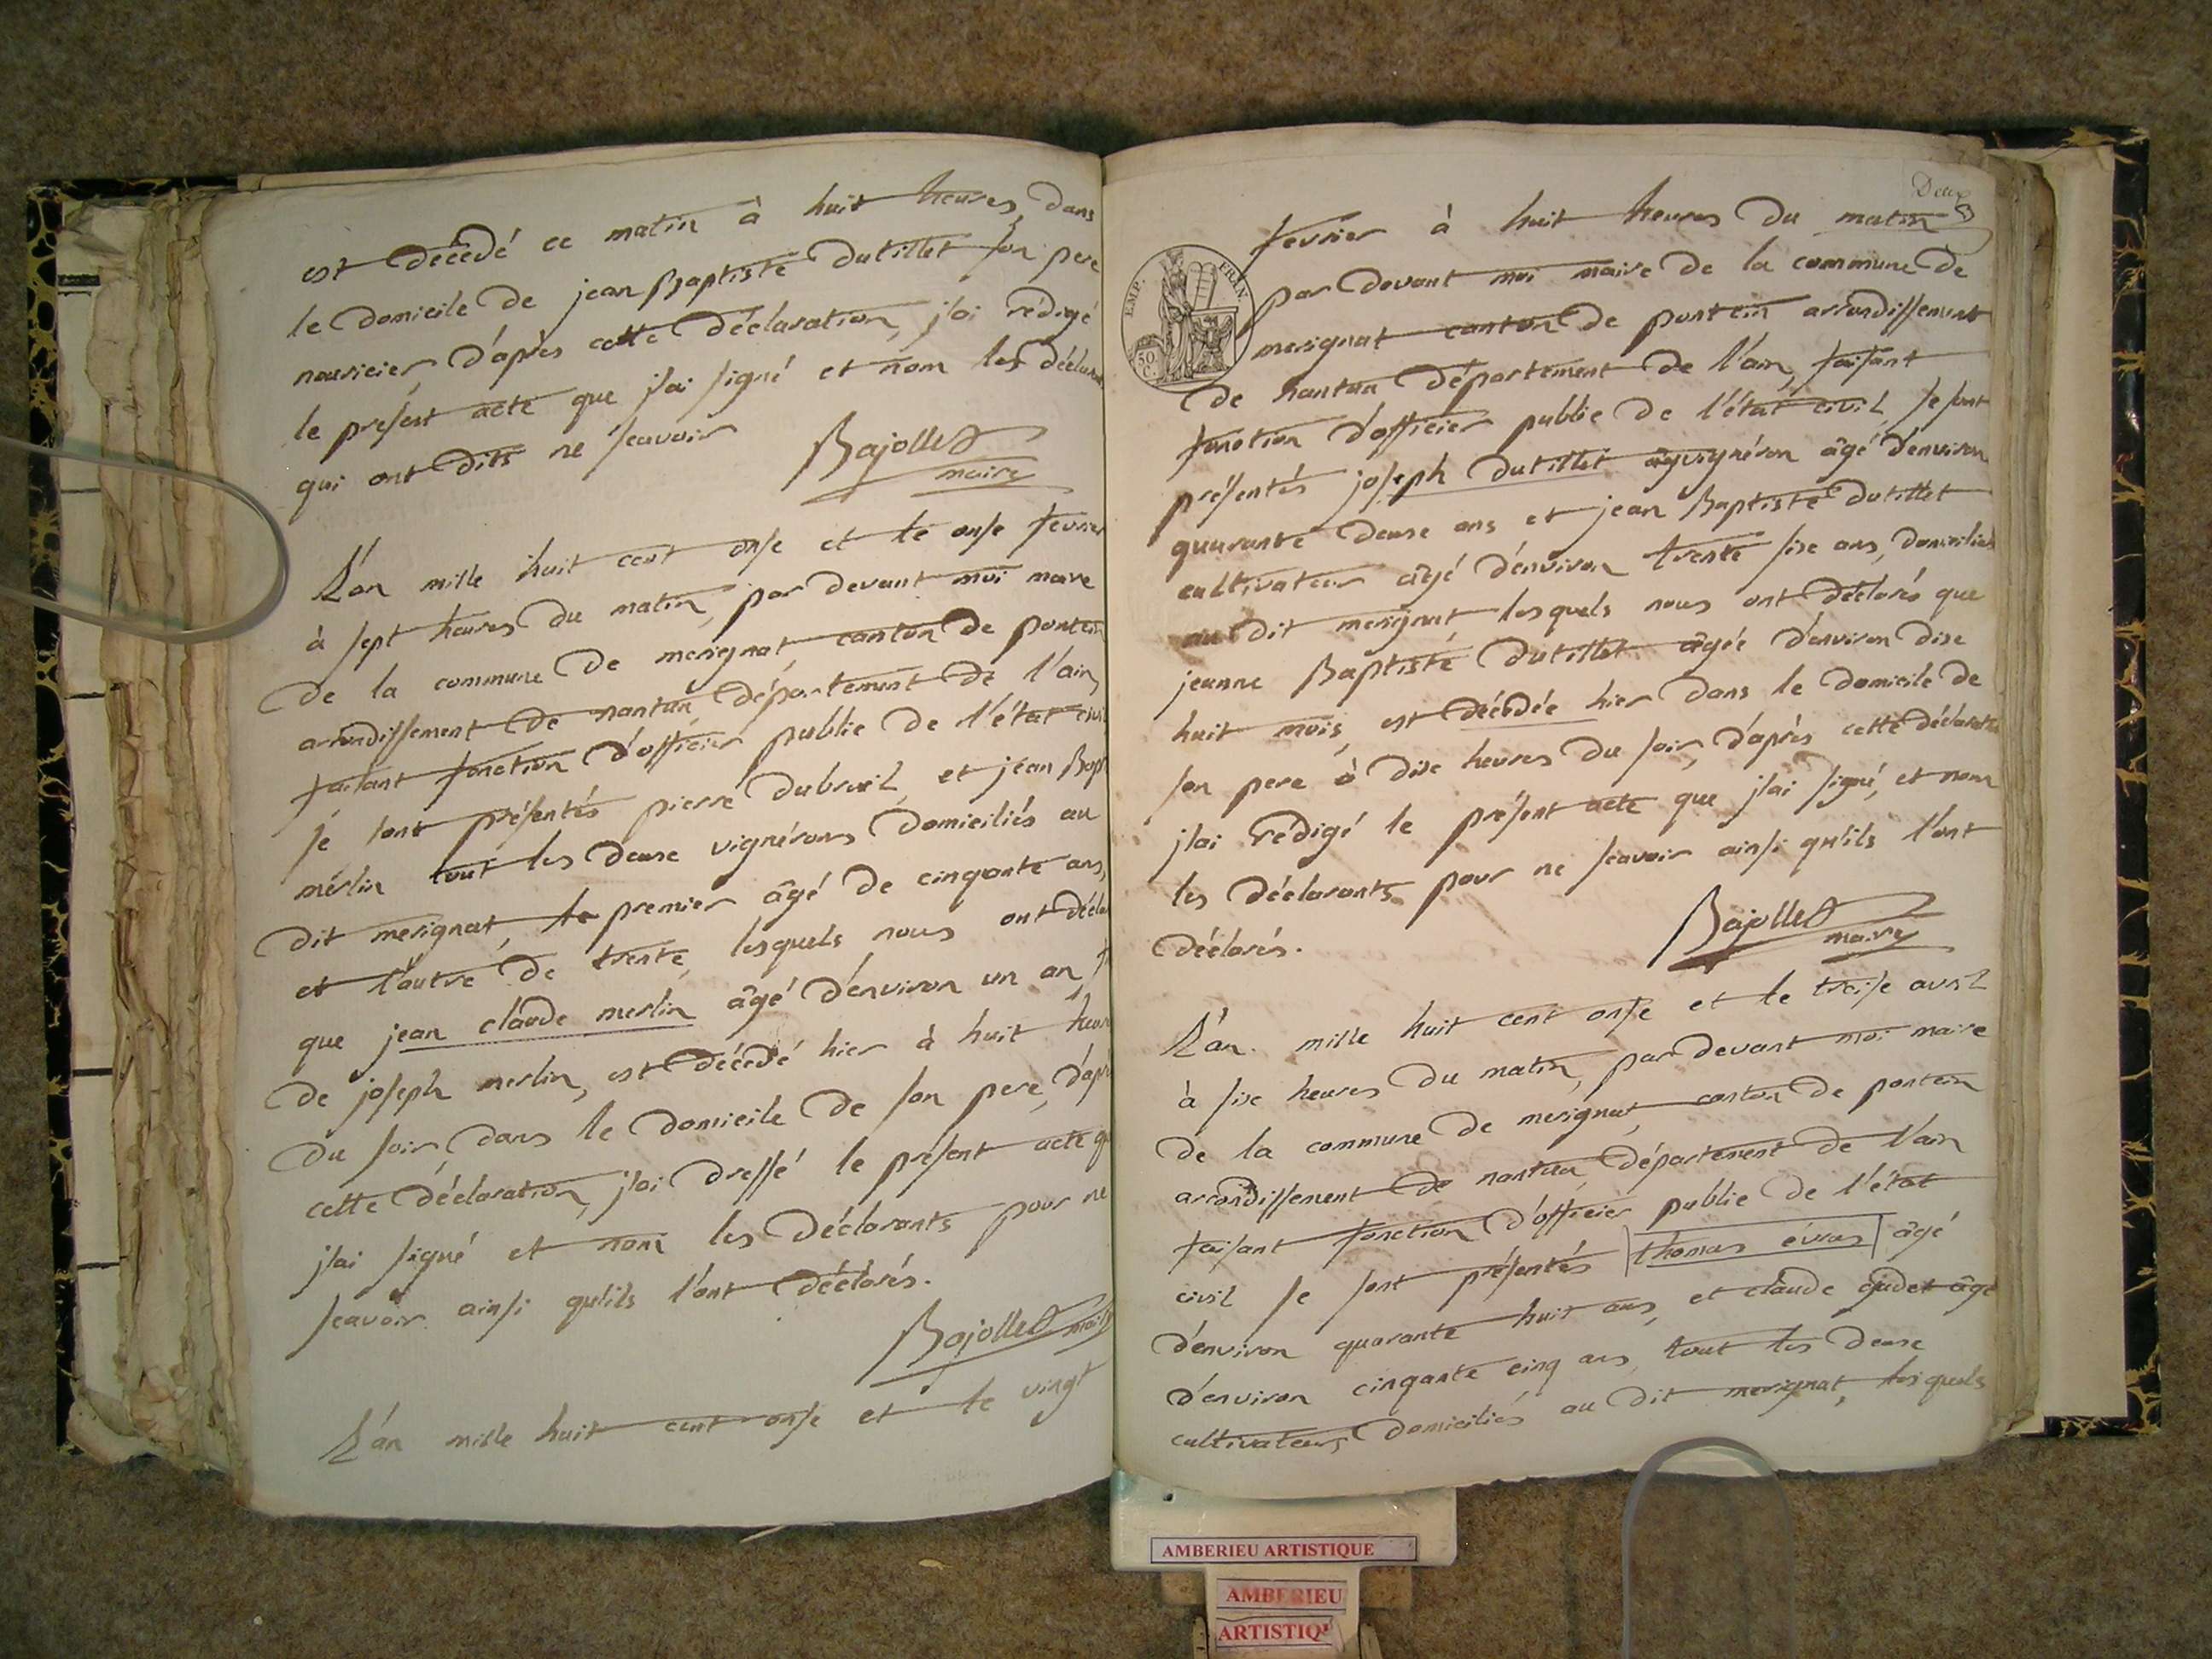 est décédé ce matin à huit heures, dans
le domicile de jean Baptiste dutillet son pere
nouricier, d'après cette déclaration, j'ai rédigé
le present acte que j'ai signé et nom les
qui ont dits ne scavoir
Bajollet
maire
L'an mille huit cent onse et le onse fevrier
à sept heures du matin, par devant moi maire
de la commune de merignat canton de poncin
arrondissement de nantua, département de l'ain,
faisant fonction d'officier public de l'état civil
se sont présentés pierre dubreuil, et jean
merlin tout les deuse vignérons domiciliés au
dit merignat, le premier âgé de cinqante ans,
et l'autre de trente, lesquels nous ont
que jean claude merlin âgé d'environ un an,
de joseph merlin, est décédé hier à huit
du soir dans le domicile de son pere,
cette déclaration, j'ai dressé le présent acte
j'ai signé et nom les déclarants pour ne
scavoir ainsi qu'ils l'ont déclarés.
Bajollet maire
L'an mille huit cent onse et le vingt
Deux
fevrier à huit heures du matin
par devant moi maire de la commune de
EMP. FRAN.
merignat canton de poncin arrondissement
50 C.
de nantua département de l'ain, faisant
fonction d'officier public de l'état civil, se sont
présentés joseph dutillet vignéron âgé d'environ
quarante deuse ans et jean Baptiste dutillet
cultivateur âgé d'environ trente sixe ans, domiciliés
au dit merignat lesquels nous ont déclarés que
jeanne Baptiste dutillet âgée d'environ dixe
huit mois, est décédée hier dans le domicile de
son pere à dixe heures du soir, d'après cette
j'ai rédigé le présent acte que j'ai signé, et nom
les déclarants pour ne scavoir ainsi qu'ils l'ont
déclarés.
Bajollet
maire
L'an mille huit cent onse et le treise avril
à sixe heures du matin, par devant moi maire
de la commune de merignat, canton de poncin
arrondissement de nantua, département de l'ain
faisant fonction d'officier public de l'état
civil se sont présentés thomas évras âgé
d'environ quarante huit ans, et claude âgé
d'environ cinqante cinq ans, tout les deuse
cultivateurs domiciliés au dit merignat, lesquels
AMBERIEU ARTISTIQUE
AMBERIEU
ARTISTIQU